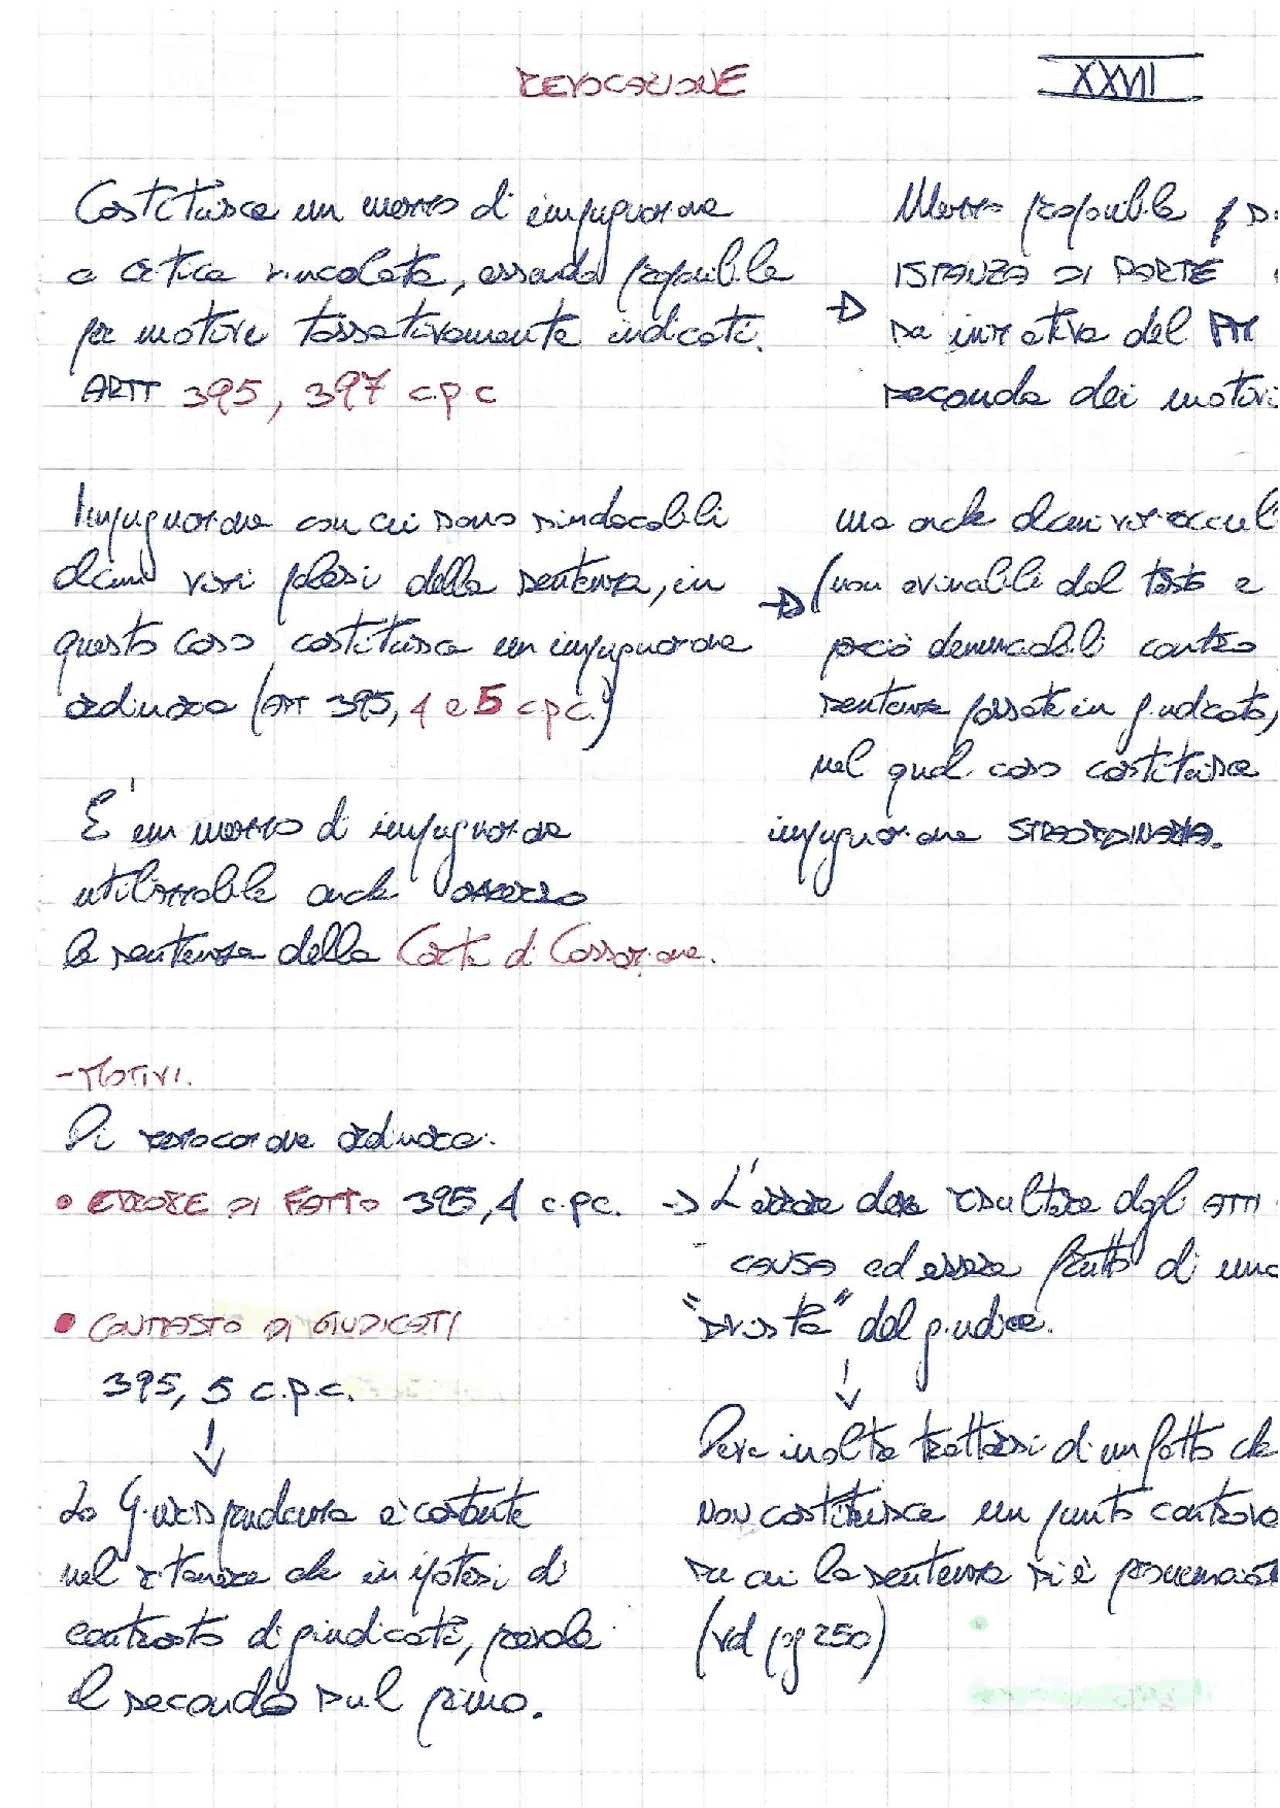 REVOCAZIONE
XXVII
Costituisce un mezzo di impugnazione
a critica vincolata, essendo proponibile
per motivi tassativamente indicati.
ARTT 395, 397 c.p.c
→
Mezzo proponibile
ISTANZA DI PARTE
su iniziativa del PM
seconda dei motivi
Impugnazione con cui sono sindacabili
alcuni vizi palesi della sentenza, in
questo caso costituisce un impugnazione
ordinaria (ART 395, 4 e 5 c.p.c.)
→
ma anche alcuni vizi occul
(non evincibili dal testo e
perciò denunciabili contro
sentenze passate in giudicato,
nel qual caso costituisce
impugnazione STRAORDINARIA.
E' un mezzo di impugnazione
utilizzabile anche avverso
la sentenza della Corte di Cassazione.
- MOTIVI.
Di revocazione ordinaria:
• ERRORE DI FATTO 395,4 c.p.c. → L'errore deve risultare dagli ATTI
causa ed essere frutto di una
"svista" del giudice.
↓
Deve inoltre trattarsi di un fatto che
NON costituisce un punto controve
su cui la sentenza si è pronunciata
(vd pg 250)
• CONTRASTO DI GIUDICATI
395, 5 c.p.c.
↓
La Giurisprudenza è costante
nel ritenere che in ipotesi di
contrasto di giudicati, prevale
il secondo sul primo.